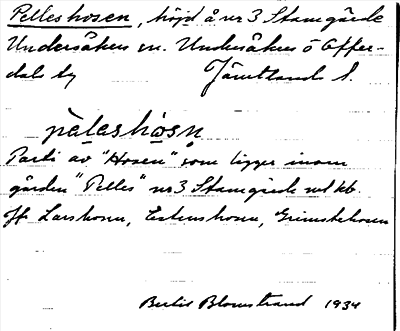 Pelleshosen, höjd å nr 3 Stamgärde
Undersåkers sn. Undersåkers o Offer-
dals tg Jämtlands l.
pèleshòsn̥
Parti av "Hosen" som ligger inom
gården "Pelles" nr 3 Stamgärde
Jfr Larshosen, Estenshosen, Grimstehosen
Bertil Blomstrand 1934